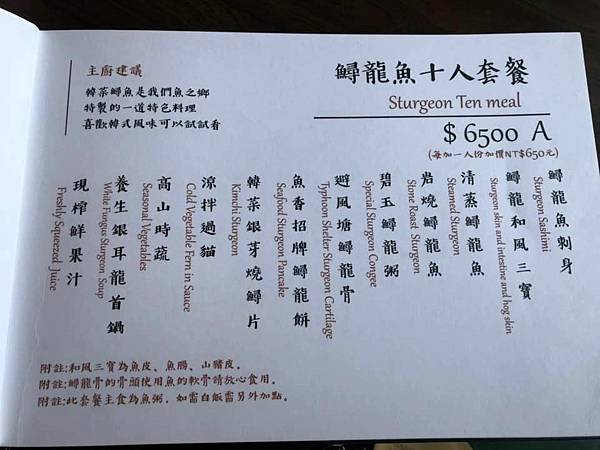 鱘龍魚十人套餐
Sturgeon Ten meal
$6500 A
(每加一人份加價NT$650元)
主廚建議
韓菜鱘魚是我們魚之鄉
特製的一道特色料理
喜歡韓式風味可以試試看
鱘龍魚刺身
Sturgeon Sashimi
鱘龍和風三寶
Sturgeon skin and intestine and hog skin
清蒸鱘龍魚
Steamed Sturgeon
岩燒鱘龍魚
Stone Roast Sturgeon
碧玉鱘龍粥
Special Sturgeon Congee
避風塘鱘龍骨
Typhoon Shelter Sturgeon Cartilage
魚香招牌鱘龍餅
Seafood Sturgeon Pancake
韓菜銀芽燒鱘片
Kimchi Sturgeon
涼拌過貓
Cold Vegetable Fern in Sauce
高山時蔬
Seasonal Vegetables
養生銀耳龍首鍋
White Fungus Sturgeon Soup
現榨鮮果汁
Freshly Squeezed Juice
附註:和風三寶為魚皮、魚腸、山豬皮。
附註:鱘龍骨的骨頭使用魚的軟骨請放心食用。
附註:此套餐主食為魚粥．如需白飯需另外加點。